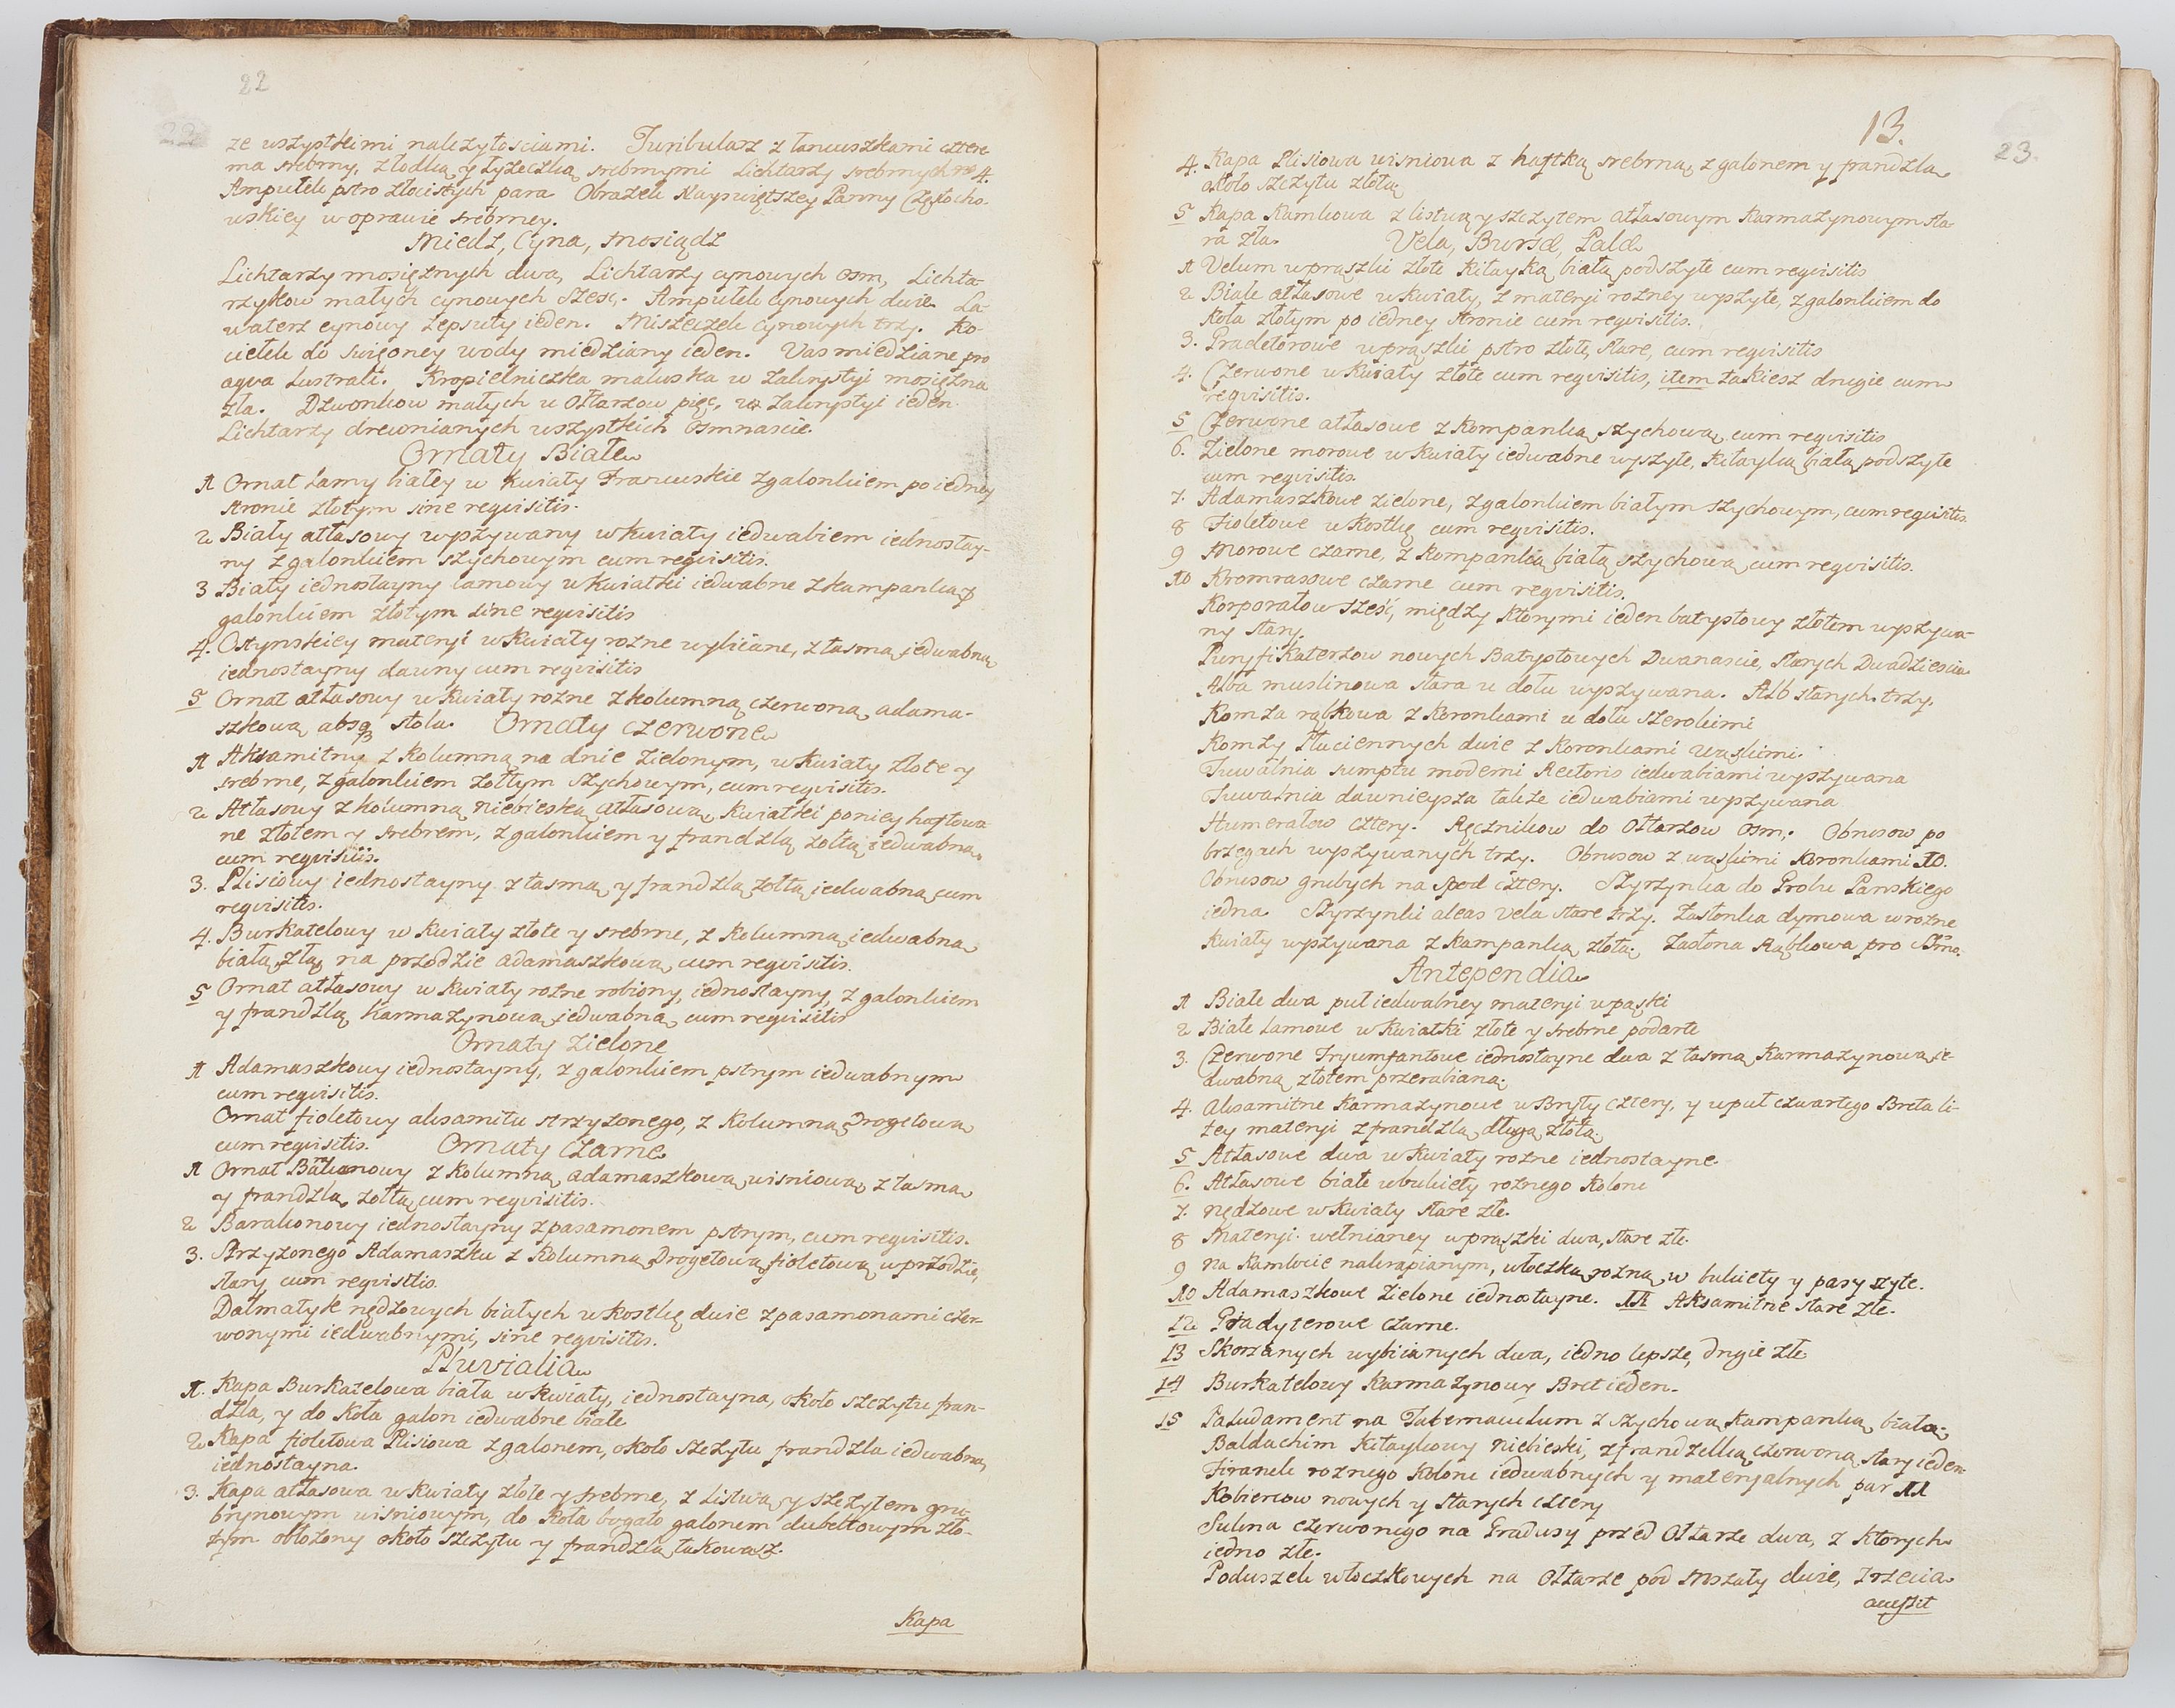 22
22
ze wszystkimi nalezytosciami. Turibularz z łancuszkami cztere
ma srebrny, złodką y łyżeczką srebrnymi Lichtarzy srebrnych 4.
Ampułek pstro złocistych para Obrazek Nayswiętszey Panny Częstocho-
wskiey w oprawie srebrney.
Miedz, Cyna, Mosiądz
Lichtarzy mosięznych dwa, Lichtarzy cynowych osm, Lichta-
rzykow małych cynowych szesc. Ampułek cynowych dwie. La-
waterz cynowy zepsuty ieden. Miseczek cynowych trzy. Ko-
ciełek do swięconey wody miedziany ieden. Vas miedziane pro
aqua lustrali. Kropielniczka maluska w Zakrystyi mosięzna
zła. Dzwonkow małych u Ołtarzow pięc, w Zakrystyi ieden
Lichtarzy drewnianych wszystkich osmnascie.
Ornaty Białe
1 Ornat Lamy białey w kwiaty Francuskie z galonkiem po iedney
stronie złotym sine reqvisitis.
2 Biały atłasowy wyszywany w kwiaty iedwabiem iednostay-
ny z galonkiem szychowym cum reqvisitis.
3 Biały iednostayny lamowy w kwiatki iedwabne z kampanką y
galonkiem złotym sine reqvisitis
4. Ostynskiey materyi w kwiaty rozne wybiiane, z tasmą iedwabną
iednostayny dawny cum reqvisitis
5 Ornat atłasowy w kwiaty rozne z kolumną czerwoną adama-
szkową absq stola. Ornaty czerwone
1 Aksamitny z kolumną na dnie zielonym, w kwiaty złote y
srebrne, z galonkiem zołtym szychowym, cum reqvisitis.
2 Atłasowy z kolumną niebieską atłasową, kwiatki po niey haftowa
ne złotem y srebrem, z galonkiem y frandzlą zołtą iedwabną
cum reqvisitis.
3. Plisiowy iednostayny z tasmą y frandzlą zołtą iedwabną cum
reqvisitis.
4. Burkatelowy w kwiaty złote y srebrne, z kolumną iedwabną
białą, złą na przodzie adamaszkową cum reqvisitis.
5 Ornat atłasowy w kwiaty rozne robiony, iednostayny, z galonkiem
y frandzlą karmazynową iedwabną cum reqvisitis
Ornaty zielone
1 Adamaszkowy iednostayny, z galonkiem pstrym iedwabnym
cum reqvisitis.
Ornat fioletowy aksamitu strzyzonego, z kolumną Drogetową
cum reqvisitis. Ornaty Czarne
1 Ornat Barakanowy z kolumną adamaszkową wisniową, z tasmą
y frandzlą zołtą cum reqvisitis.
2 Barakonowy iednostayny z pasamonem pstrym, cum reqvisitis.
3. Strzyzonego Adamaszku z kolumną Drogetową fioletową w przodzie,
stary cum reqvisitis.
Dalmatyk nędzowych białych w kostkę dwie z pasamonami czer-
wonymi iedwabnymi, sine reqvisitis.
Pluvialia
1. Kapa Burkatelowa biała w kwiaty, iednostayna, około szczytu fran-
dzla, y do koła galon iedwabne białe
2 Kapa fioletowa Plisiowa z galonem, około szczytu frandzla iedwabna,
iednostayna.
3. Kapa atłasowa w kwiaty złote y srebrne, z Listwą y szczytem gro-
brynowym wisniowym, do koła bogato galonem dubeltowym zło-
tym obłozony około szczytu y frandzlą takowąz.
Kapa
13.
23.
4. Kapa Plisiowa wisniowa z haftką srebrną, z galonem y frandzlą
około szczytu złotą.
5 Kapa Kamkowa z listwą y szczytem atłasowym karmazynowym sta-
ra zła. Vela, Bursæ, Palæ
1 Velum w prąszki złote kitayką białą podszyte cum reqvisitis
2 Białe atłasowe w kwiaty, z materyi rozney wyszyte, z galonkiem do
koła złotym po iedney stronie cum reqvisitis.
3. Gradetorowe w prąszki pstro złote, stare, cum reqvisitis
4. Czerwone w kwiaty złote cum reqvisitis, item takiesz drugie cum
reqvisitis.
5 Czerwone atłasowe z kompanką szychową, cum reqvisitis
6. Zielone morowe w kwiaty iedwabne wyszyte, kitayką białą podszyte
cum reqvisitis.
7. Adamaszkowe zielone, z galonkiem białym szychowym, cum reqvisitis.
8 Fioletowe w kostkę cum reqvisitis.
9 Morowe czarne, z kompanką białą szychową cum reqvisitis.
10 Kromrasowe czarne cum reqvisitis.
Korporałow sześć, między ktorymi ieden batystowy złotem wyszywa-
ny stary.
Puryfikaterzow nowych Batystowych Dwanascie, starych Dwadziescia
Alba muslinowa stara u dołu wyszywana. Alb starych trzy.
Komza rąbkowa z koronkami u dołu szerokimi
Komzy Płuciennych dwie z koronkami wąskimi.
Tuwalnia sumptu moderni Rectoris iedwabiami wyszywana
Tuwalnia dawnieysza takze iedwabiami wyszywana
Humerałow cztery. Ręcznikow do Ołtarzow osm. Obrusow po
brzegach wyszywanych trzy. Obrusow z wąskimi koronkami 10.
Obrusow grubych na spod cztery. Styrzynka do Grobu Panskiego
iedna Styrzynki aleas Vela stare trzy. Zasłonka dymowa w rozne
kwiaty wyszywana z kampanką złotą. Zasłona Rąbkowa pro Smo.
Antependia
1 Białe dwa puł iedwabney materyi w paski
2 Białe Lamowe w kwiatki złote y srebrne podarte
3. Czerwone Tryumfantowe iednostayne dwa z tasmą karmazynową ie-
dwabną złotem przerabianą.
4. Aksamitne karmazynowe w Bryty cztery, y w puł czwartego Breta li-
tey materyi z frandzlą długą złotą.
5 Atłasowe dwa w kwiaty rozne iednostayne.
6. Atłasowe białe w bukiety roznego koloru
7. nędzowe w kwiaty stare złe.
8 Materyi wełnianey w prązki dwa, stare złe.
9 na Kamlocie nakrapianym, włoczką rozną w bukiety y pasy szyte.
10 Adamaszkowe zielone iednostayne. 11 Aksamitne stare złe.
12 Gradyterowe czarne.
13 Skorzanych wybiianych dwa, iedno lepsze, drugie złe
14 Burkatelowy karmazynowy Bret ieden.
15 Paludament na Tabernaculum z szychową kampanką białą.
Baldachim kitaykowy niebieski, z frandzelką czerwoną, stary ieden
Firanek roznego koloru iedwabnych y materyalnych par 11
Kobiercow nowych y starych cztery
Sukna czerwonego na Gradusy przed Ołtarze dwa, z ktorych
iedno złe.
Poduszek włoczkowych na Ołtarze pod Mszały dwie, trzecia